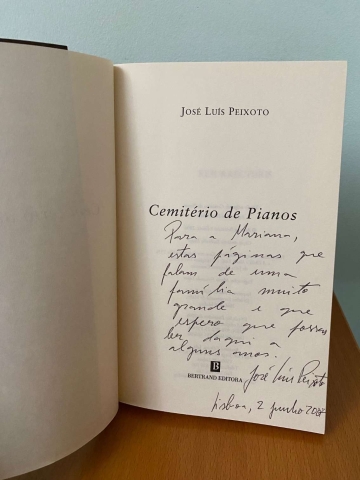 JOSÉ LUÍS PEIXOTO
Cemitério de Pianos
Para a Mariana,
estas páginas que
falam de uma
família muito
grande e que
espero que possas
ler daqui a
alguns anos.
José Luís Peixoto
B
BERTRAND EDITORA
Lisboa, 2 junho 2007